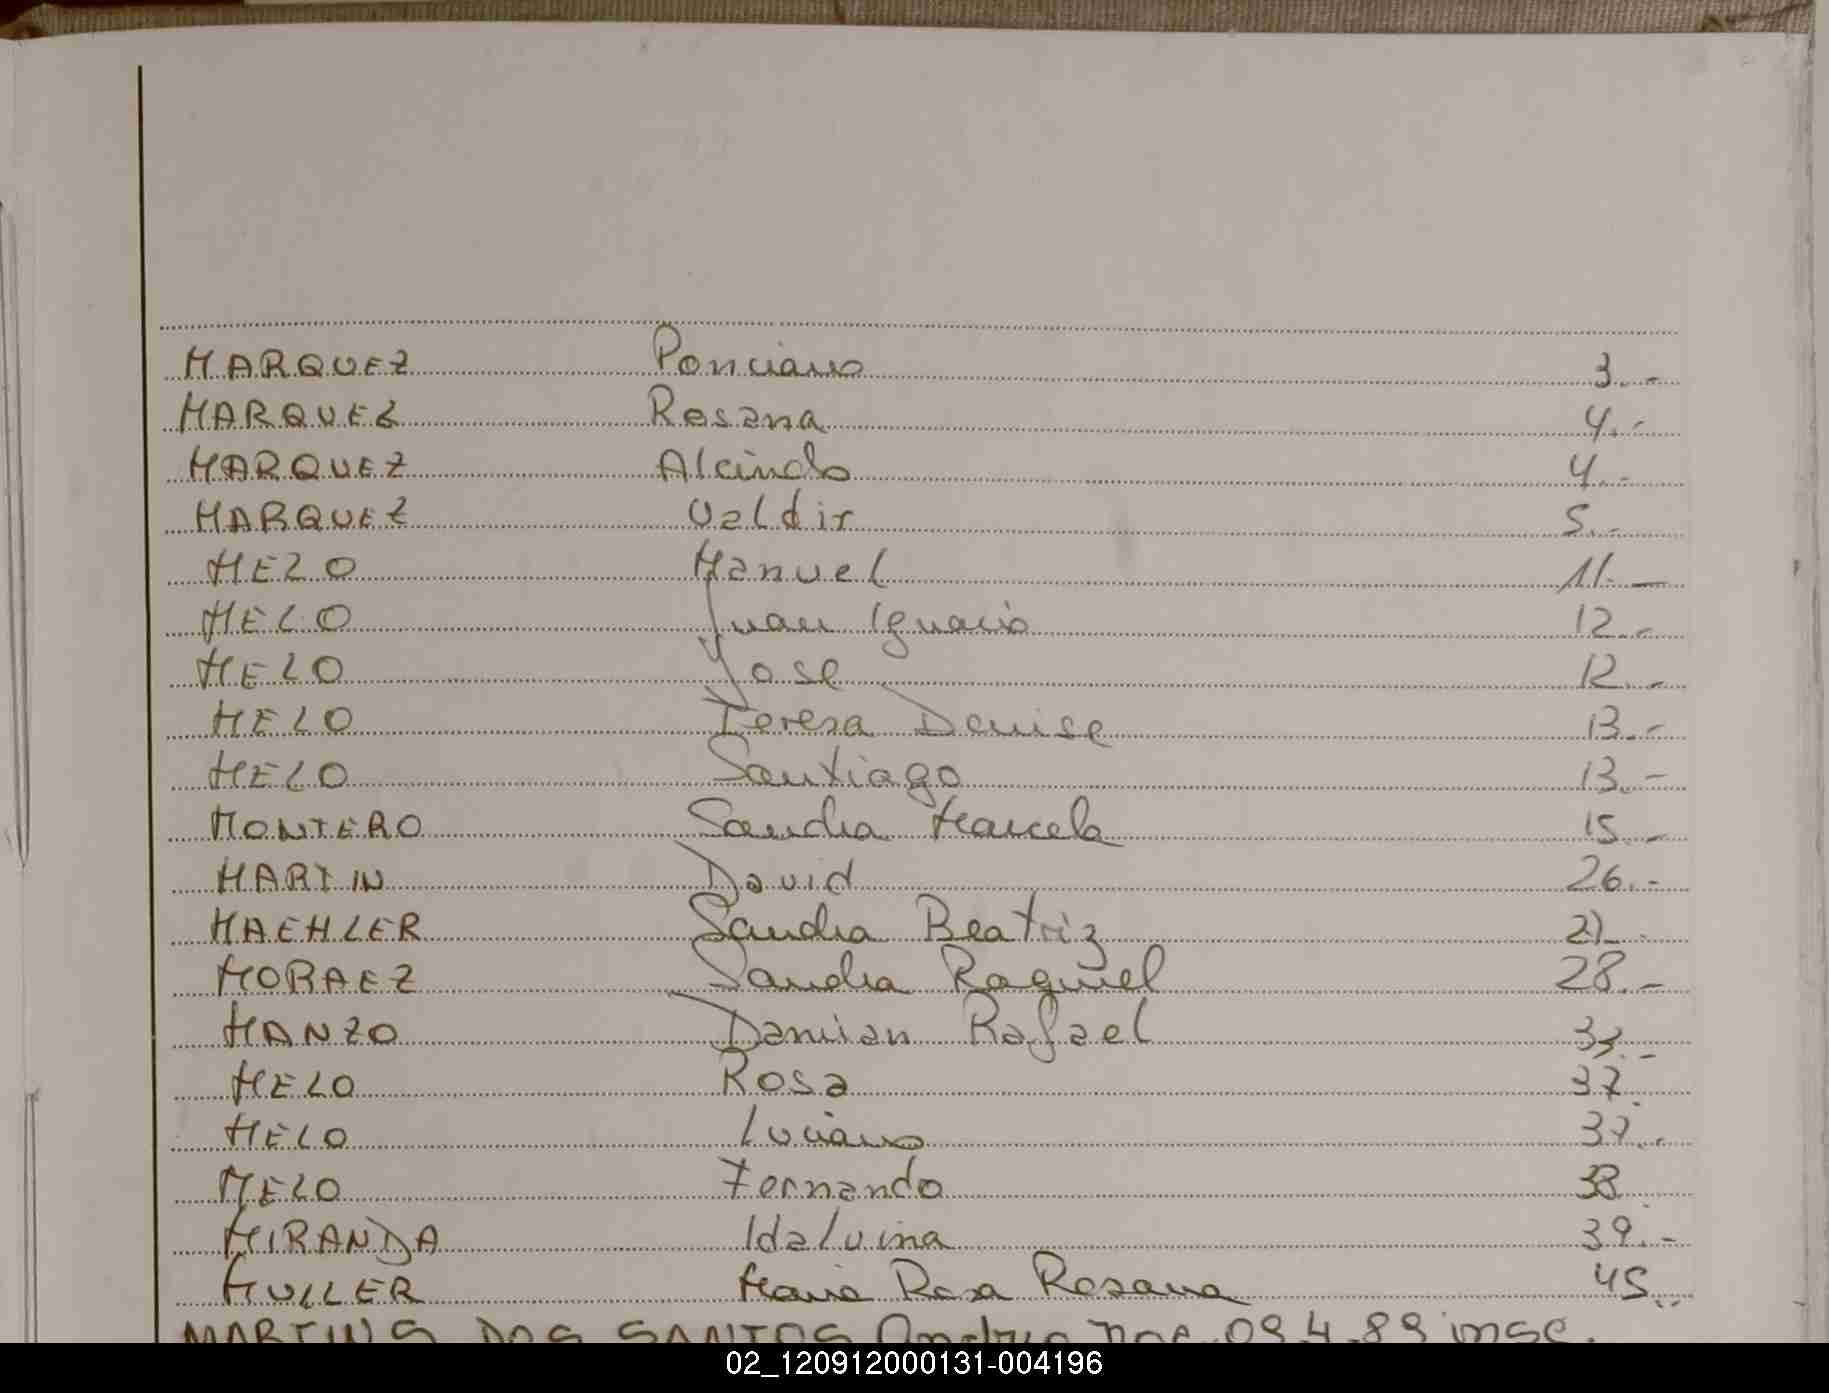 MARQUEZ Ponciano 3.-
MARQUEZ Rosana 4.-
MARQUEZ Alcindo 4.-
MARQUEZ Valdir 5.-
MELO Manuel 11.-
MELO Juan Ignacio 12.-
MELO Jose 12.-
MELO Teresa Denise 13.-
MELO Santiago 13.-
MONTERO Sandra Marcela 15.-
MARTIN David 26.-
MAEHLER Sandra Beatriz 27.-
MORAEZ Sandra Raquel 28.-
MANZO Damian Rafael 33.-
MELO Rosa 37.
MELO Luciano 37.-
MELO Fernando 38
MIRANDA Idalvina 39.-
MULLER Maria Rosa Rosana 45.-
MARTINS DOS SANTOS Andrea nac. 09.4.89 insc.
02_120912000131-004196